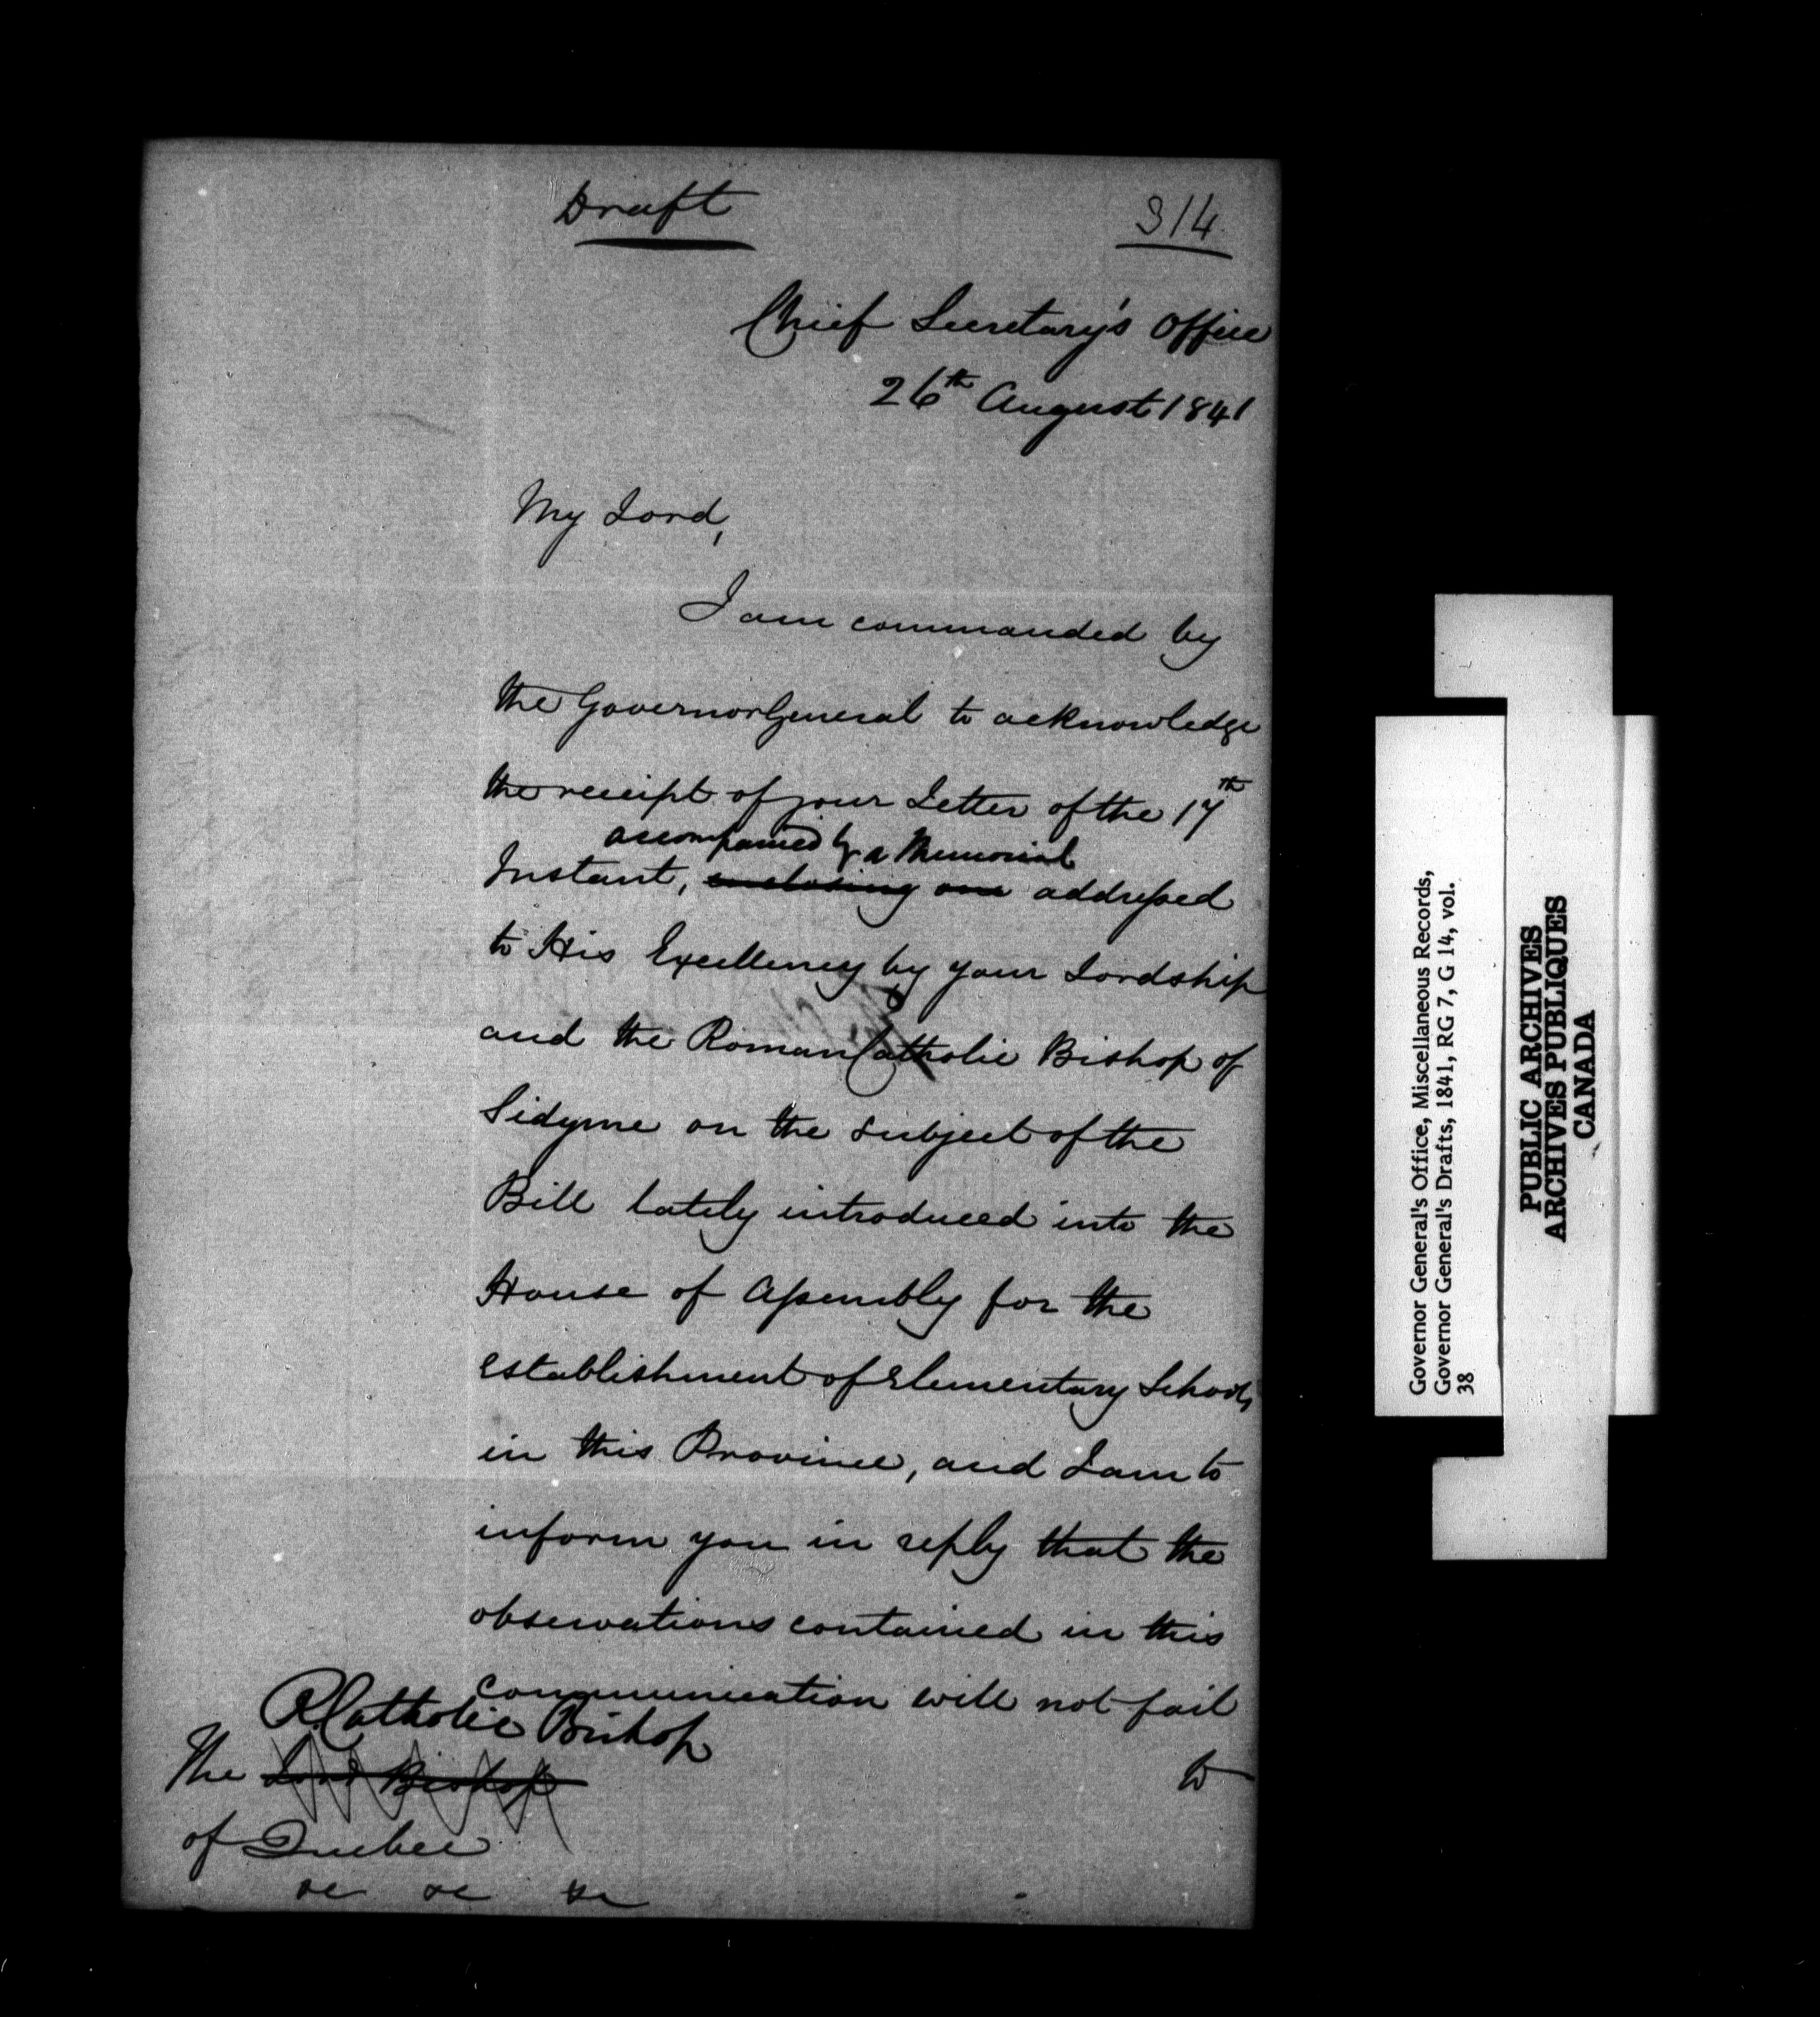 Draft
314
Chief Secretary's Office
26th August 1841
My Lord,
I am commanded by
the Governor General to acknowledge
the receipt of your Letter of the 17th
accompanied by a Memorial
Instant, enclosing one addressed
to His Excellency by your Lordship
and the Roman Catholic Bishop of
Sidyme on the subject of the
Bill lately introduced into the
House of Assembly for the
establishment of Elementary Schools
in this Province, and I am to
inform you in reply that the
observations contained in this
communication will not fail
to
R. Catholic Bishop
The Lord Bishop
of Quebec
&c &c &c
Governor General's Office, Miscellaneous Records,
Governor General's Drafts, 1841, RG 7, G 14, vol.
38
PUBLIC ARCHIVES
ARCHIVES PUBLIQUES
CANADA